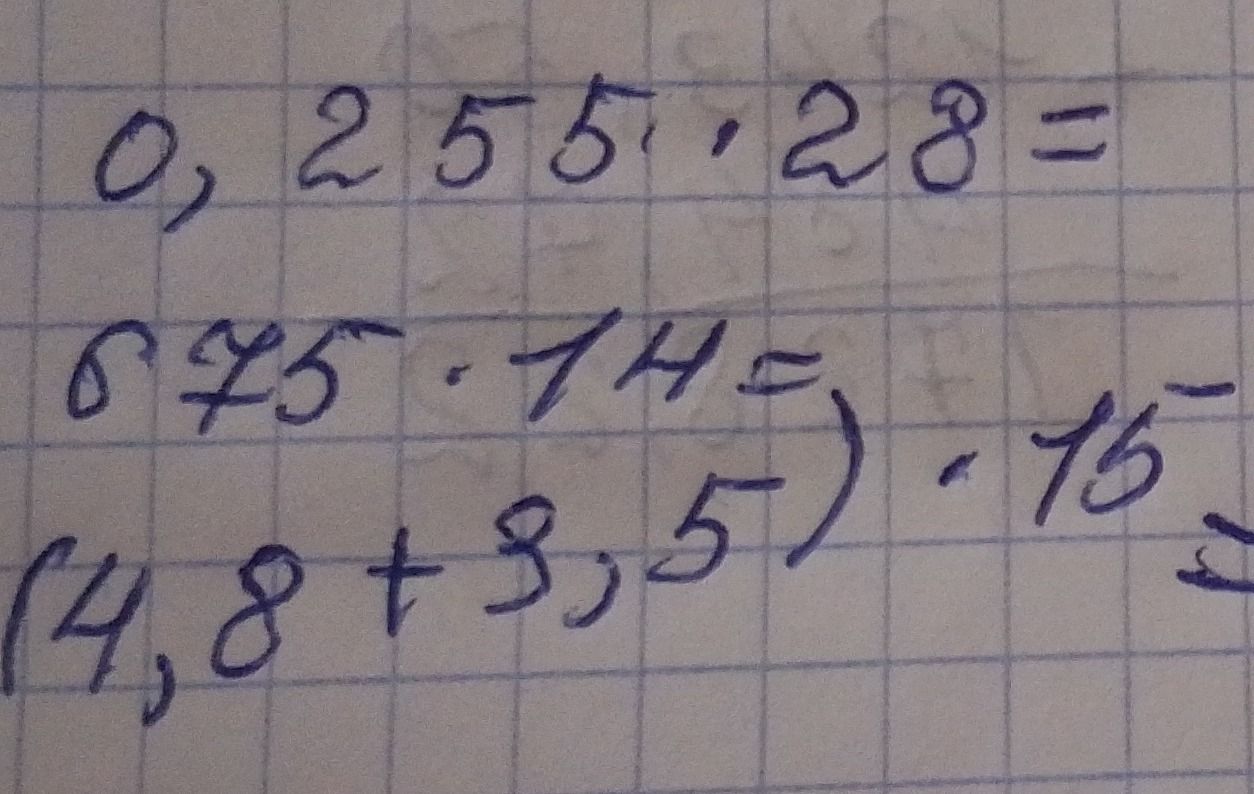 0,255 · 28 =
675 · 14 =
(4,8 + 3,5) · 15 =